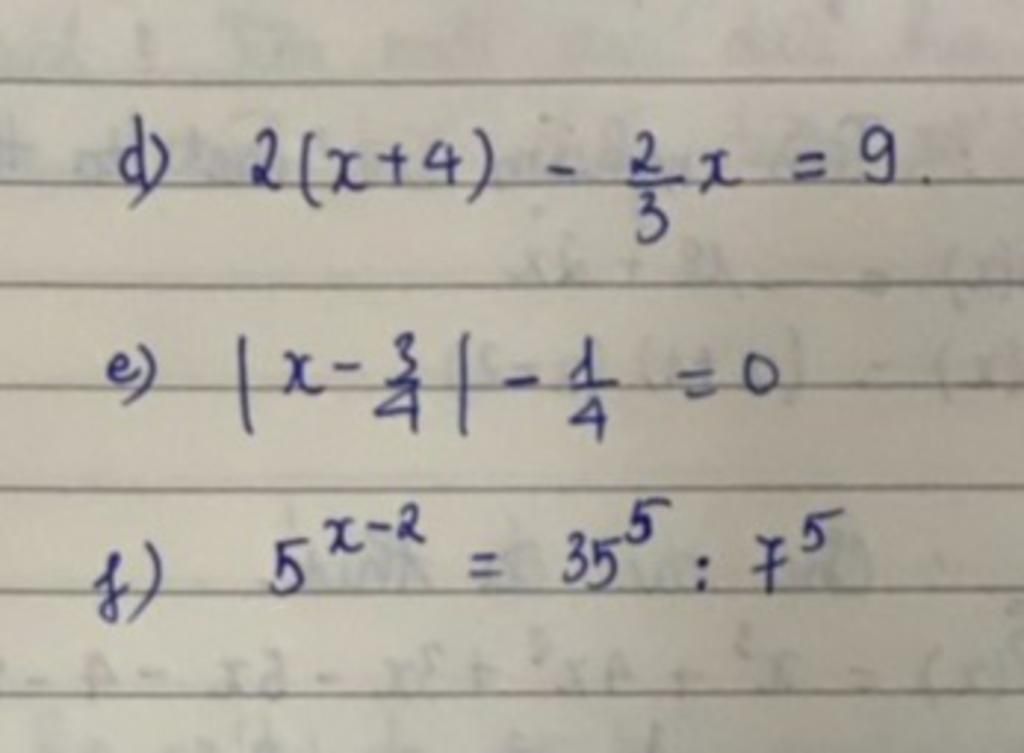 d) 2(x+4) - \frac{2}{3}x = 9.
e) |x - \frac{3}{4}| - \frac{1}{4} = 0
f) 5^{x-2} = 35^5 : 7^5